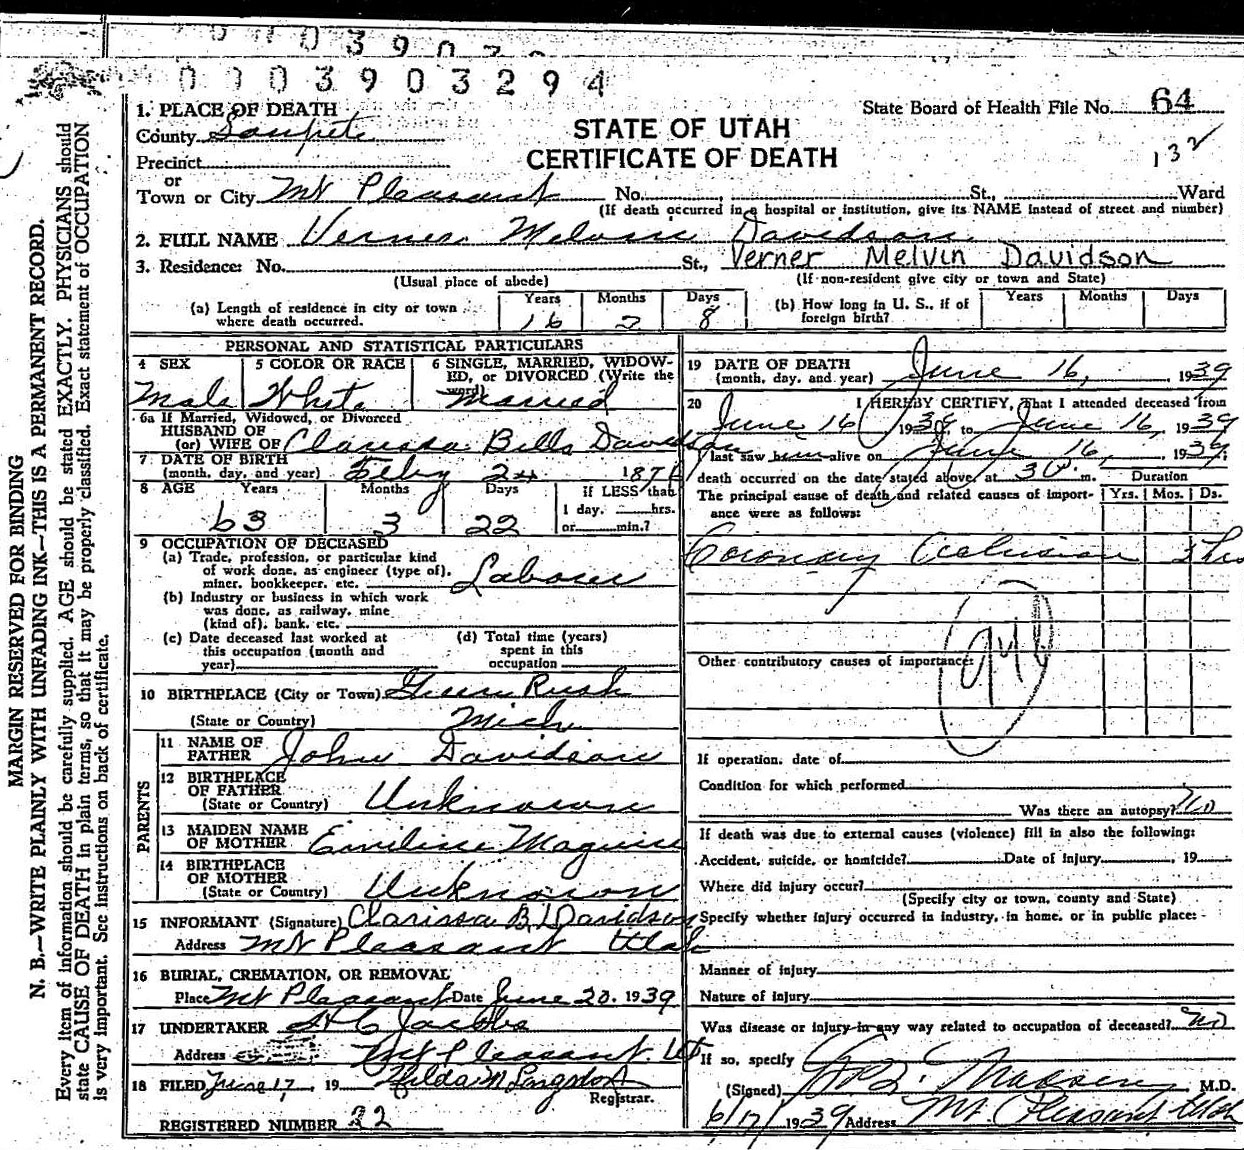 0003903294
1. PLACE OF DEATH
State Board of Health File No. 64
County Sanpete
STATE OF UTAH
132
Precinct
CERTIFICATE OF DEATH
or
Town or City Mt Pleasant No. , St., Ward
(If death occurred in a hospital or institution, give its NAME instead of street and number)
2. FULL NAME Verner Melvin Davidson
3. Residence: No. St., Verner Melvin Davidson
(Usual place of abode) (If non-resident give city or town and State)
(a) Length of residence in city or town where death occurred. Years 16 Months 2 Days 8
(b) How long in U. S., if of foreign birth? Years Months Days
PERSONAL AND STATISTICAL PARTICULARS
4 SEX 5 COLOR OR RACE 6 SINGLE, MARRIED, WIDOW-
ED, or DIVORCED (Write the
word)
Male White Married
6a If Married, Widowed, or Divorced
HUSBAND OF
(or) WIFE OF Clarissa Bills Davidson
7 DATE OF BIRTH
(month, day, and year) Feby 24 187
8 AGE Years Months Days If LESS than
1 day, hrs.
63 3 22 or min.?
9 OCCUPATION OF DECEASED
(a) Trade, profession, or particular kind
of work done, as engineer (type of),
miner, bookkeeper, etc. Laborer
(b) Industry or business in which work
was done, as railway, mine
(kind of), bank, etc.
(c) Date deceased last worked at
this occupation (month and
year)
(d) Total time (years)
spent in this
occupation
10 BIRTHPLACE (City or Town)
(State or Country) Mich
PARENTS
11 NAME OF
FATHER John Davidson
12 BIRTHPLACE
OF FATHER
(State or Country) Unknown
13 MAIDEN NAME
OF MOTHER Emiline Maguire
14 BIRTHPLACE
OF MOTHER
(State or Country) Unknown
15 INFORMANT (Signature) Clarissa B. Davidson
Address Mt Pleasant Utah
16 BURIAL, CREMATION, OR REMOVAL
Place Mt Pleasant Date June 20, 1939
17 UNDERTAKER Jacobs
Address Mt Pleasant. Ut
18 FILED June 17, 19 Hilda M Langdorf
Registrar.
REGISTERED NUMBER 22
19 DATE OF DEATH
(month, day, and year) June 16, 1939
20 I HEREBY CERTIFY, That I attended deceased from
June 16 1939 to June 16, 1939
I last saw him alive on June 16, 1939;
death occurred on the date stated above, at m.
Duration
The principal cause of death and related causes of import- Yrs. Mos. Ds.
ance were as follows:
Coronary Occlusion 3 hrs
Other contributory causes of importance:
If operation, date of
Condition for which performed
Was there an autopsy? No
If death was due to external causes (violence) fill in also the following:
Accident, suicide, or homicide? Date of injury , 19
Where did injury occur?
(Specify city or town, county and State)
Specify whether injury occurred in industry, in home, or in public place:
Manner of injury
Nature of injury
Was disease or injury in any way related to occupation of deceased? no
If so, specify
(Signed) Madsen M.D.
6/17/1939 Address Mt. Pleasant Utah
MARGIN RESERVED FOR BINDING
N. B.—WRITE PLAINLY WITH UNFADING INK—THIS IS A PERMANENT RECORD.
Every item of information should be carefully supplied. AGE should be stated EXACTLY. PHYSICIANS should
state CAUSE OF DEATH in plain terms, so that it may be properly classified. Exact statement of OCCUPATION
is very important. See instructions on back of certificate.